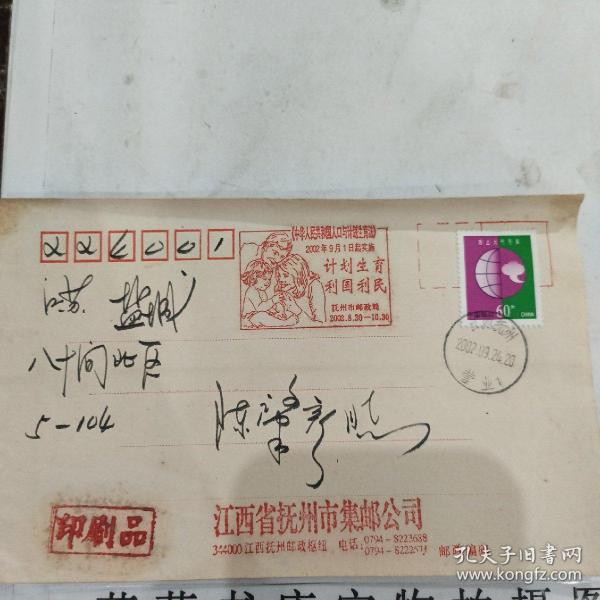 224001
《中华人民共和国人口与计划生育法》
2002年9月1日起实施
计划生育
利国利民
抚州市邮政局
2002.8.30—10.30
防止大气污染
60分
CHINA
2002.09.24.20
江苏 盐城
八十间北区
5-104
陈肇彦
印刷品
江西省抚州市集邮公司
344000 江西抚州邮政枢纽 电话:0794-8223688
0794-8222573
孔夫子旧书网
www.kongfz.com